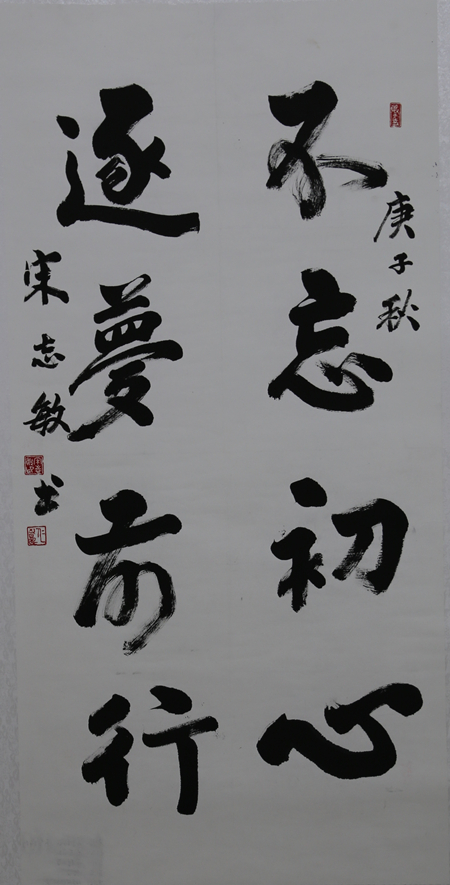 庚子秋
不忘初心
逐夢前行
宋志敏书